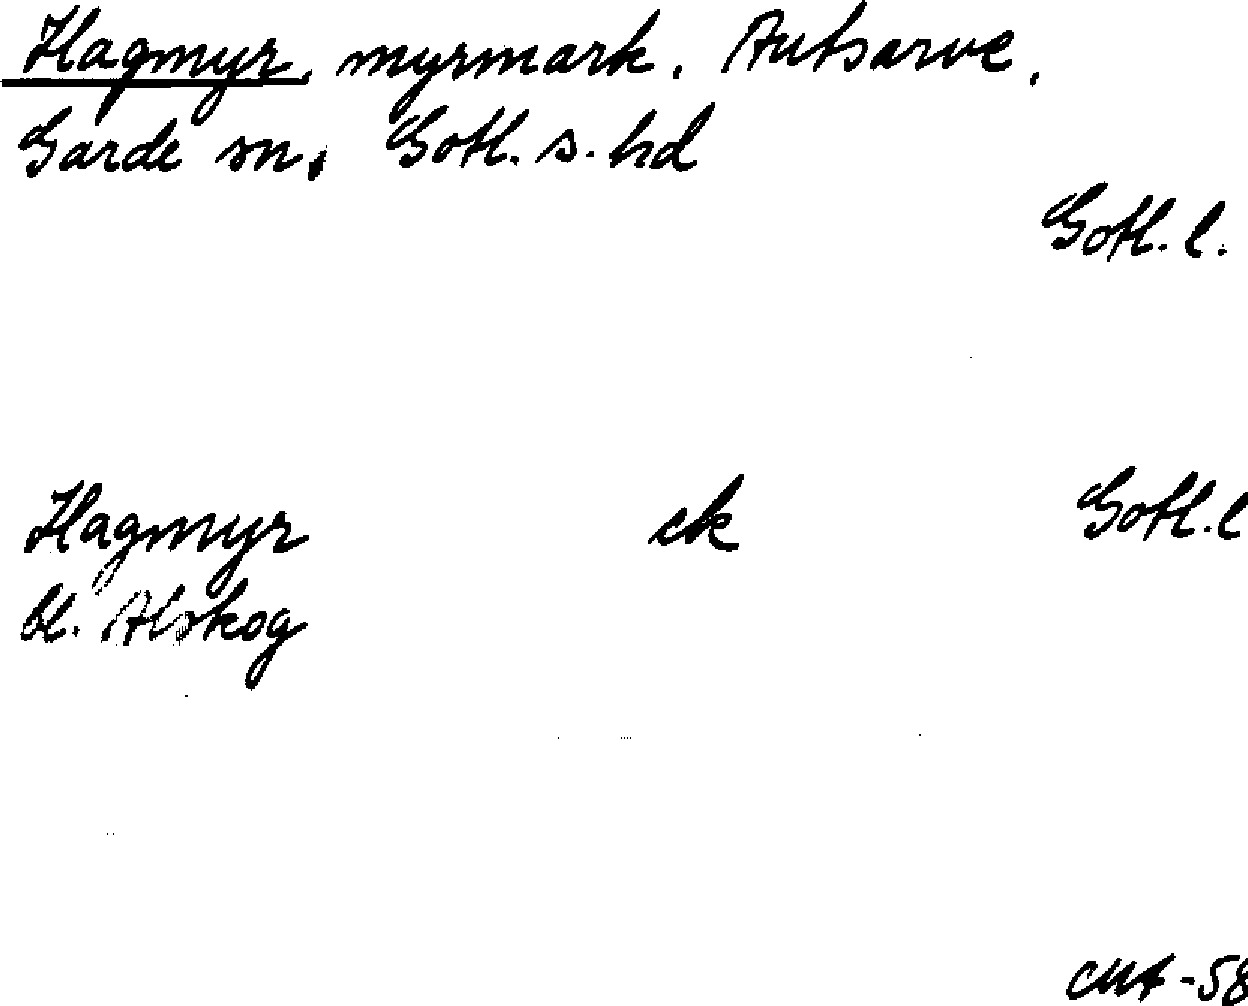 Hagmyr, myrmark. Autsarve,
Garde sn, Gotl. s. hd
Gotl. l.
Hagmyr ek Gotl. l
bl. Alskog
CMA -58